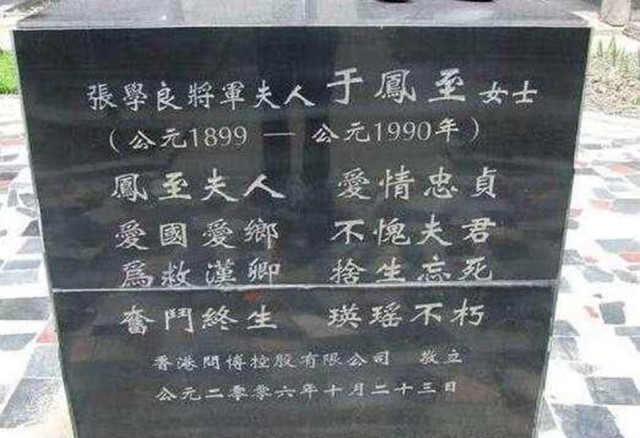 張學良將軍夫人于鳳至女士
(公元1899 — 公元1990年)
鳳至夫人 愛情忠貞
愛國愛鄉 不愧夫君
爲救漢卿 捨生忘死
奮鬥終生 瑛瑤不朽
香港問博控股有限公司 敬立
公元二零零六年十月二十三日